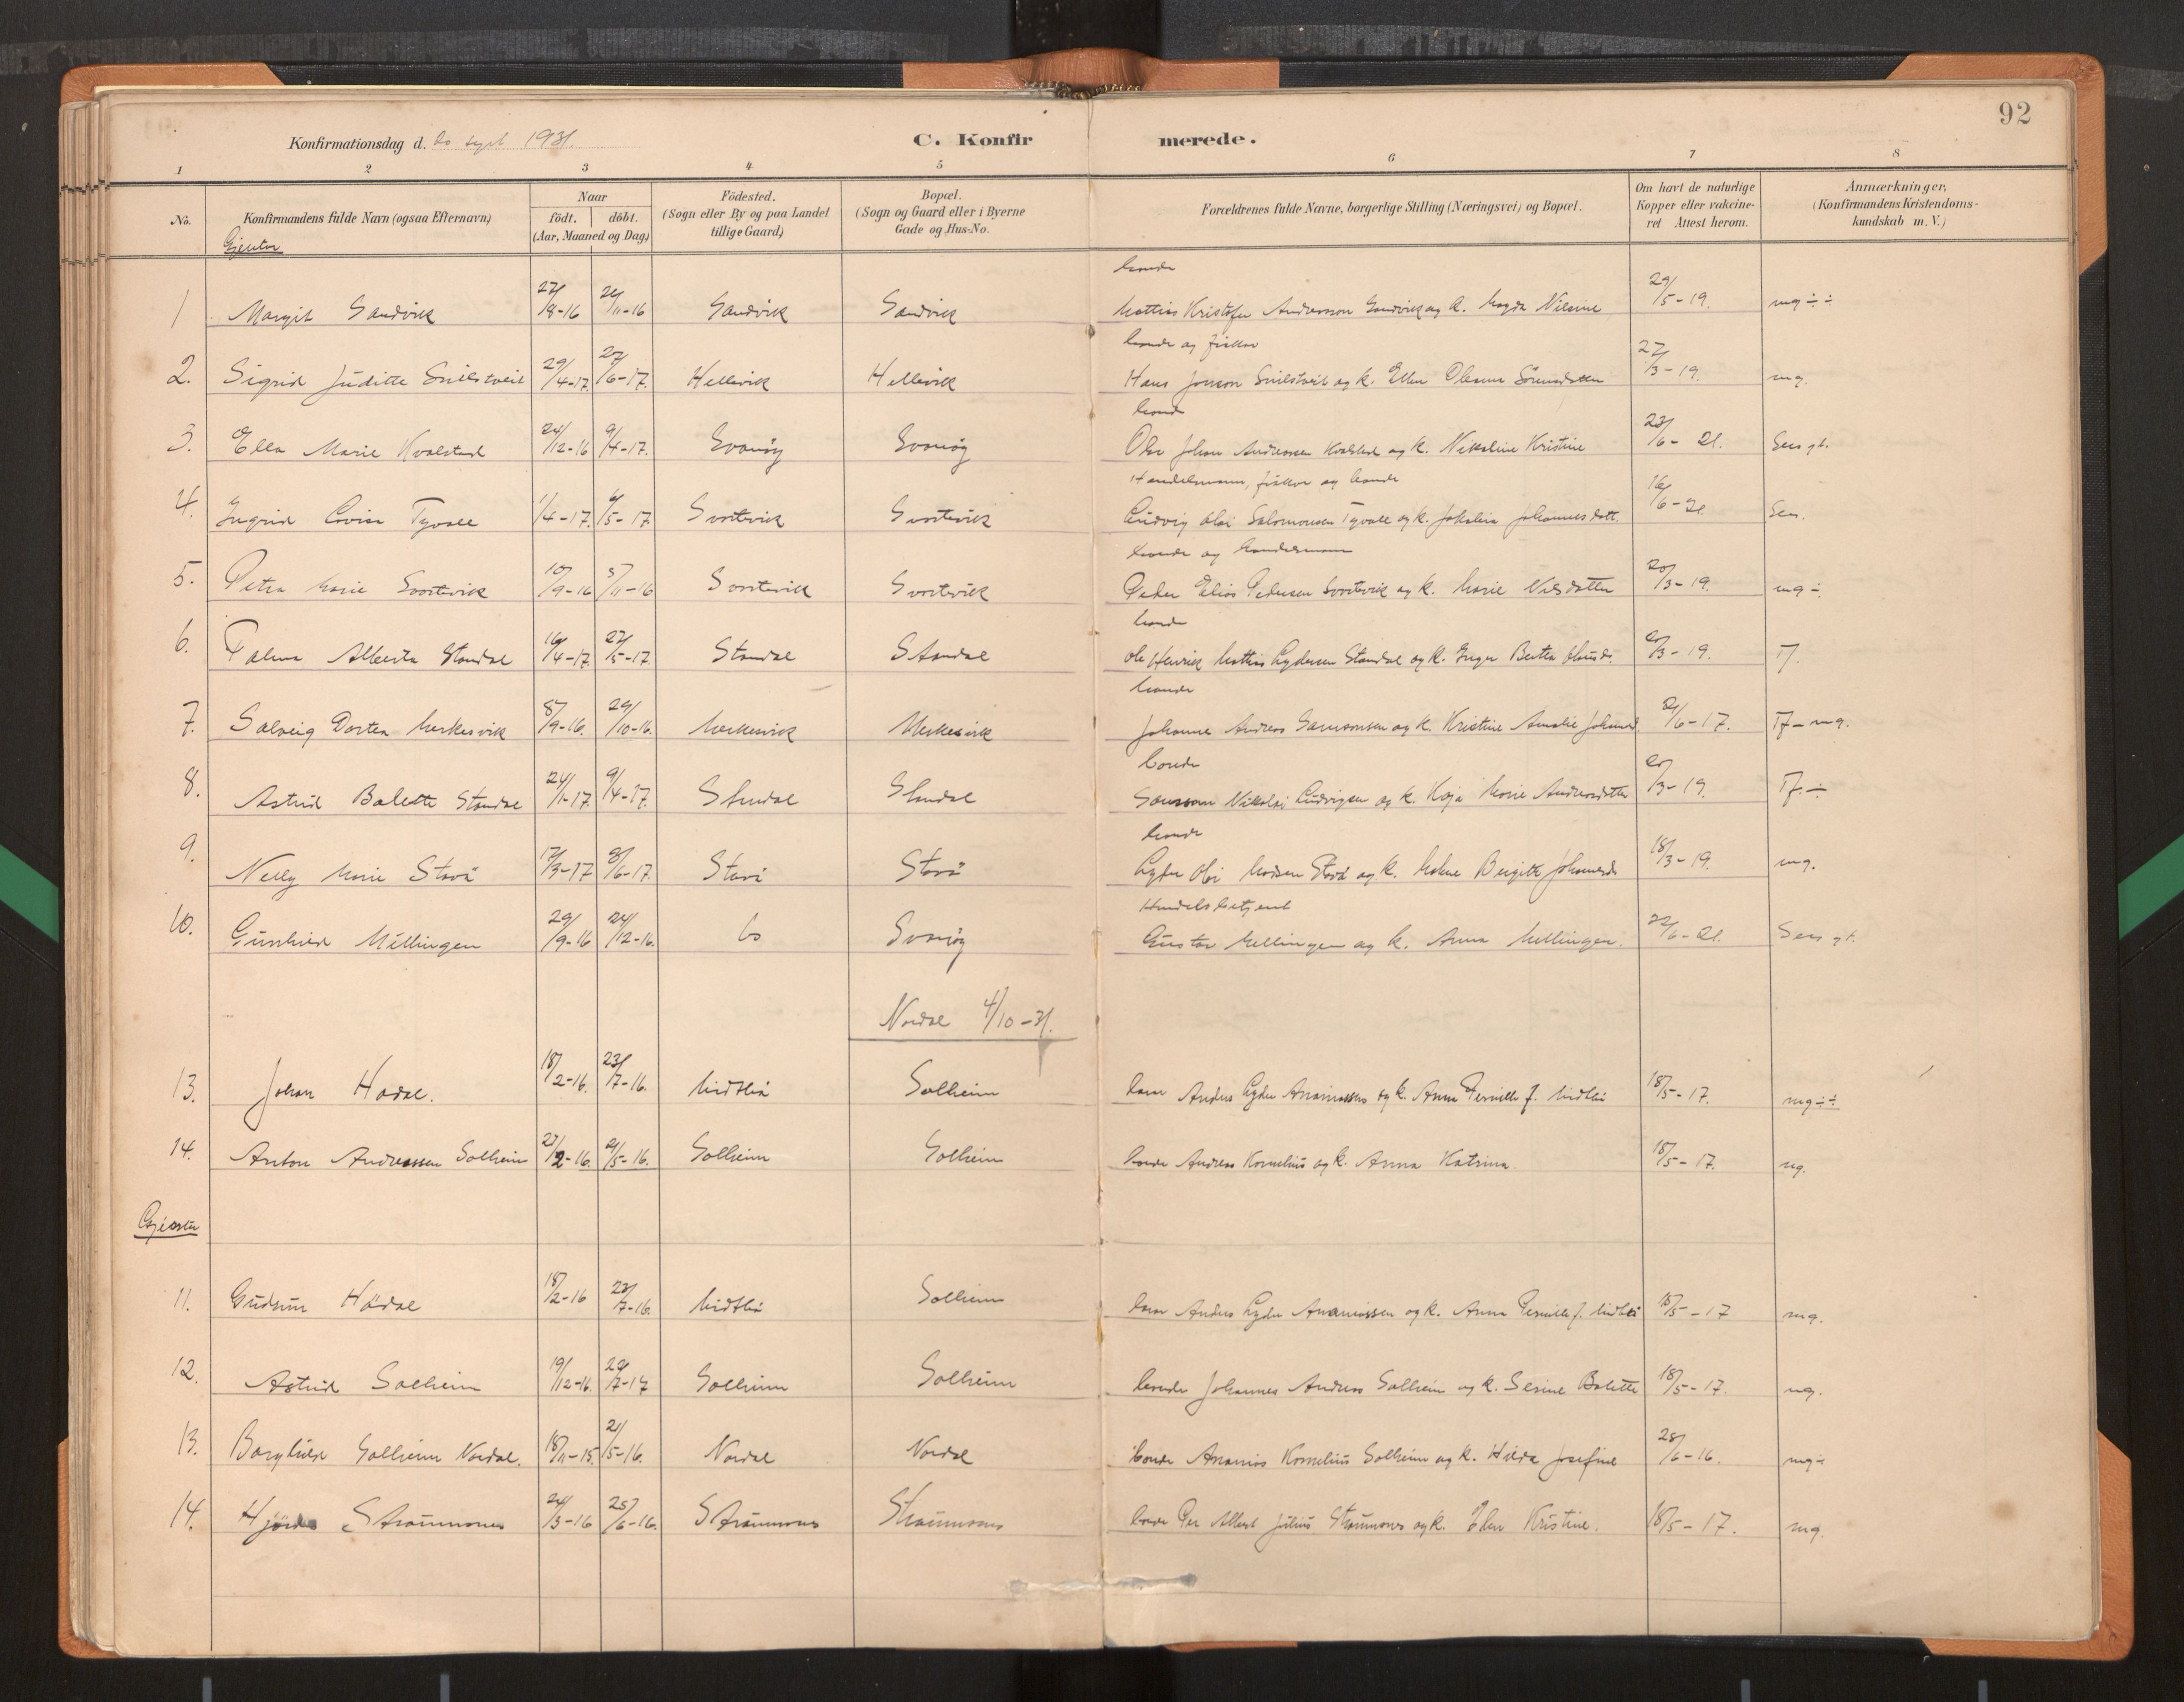 92
Konfirmationsdag d. 20 sept 1931.
C. Konfirmerede.
1 2 3 4 5 6 7 8
No.
Konfirmandens fulde Navn (ogsaa Efternavn)
Naar
födt. döbt.
(Aar, Maaned og Dag)
Födested.
(Sogn eller By og paa Landet
tillige Gaard)
Bopæl.
(Sogn og Gaard eller i Byerne
Gade og Hus-No.
Forældrenes fulde Navne, borgerlige Stilling (Næringsvei) og Bopæl.
Om havt de naturlige
Kopper eller vakcine-
ret Attest herom.
Anmærkninger.
(Konfirmandens Kristendoms-
kundskab m. V.)
Gjentor
bonde
1 Margit Sandvik 27/8-16 /11-16 Sandvik Sandvik Mattias Kristofer Andersson Sandvik og k. Magda Nilsine 29/5-19. mg ÷ ÷
bonde og fisker
2. Sigrid Juditte Snilstveit 29/4-17. 27/6-17. Hellevik Hellevik Hans Jonson Snilstveit og k. Ellen Oleane 27/3-19. mg.
bonde
3. Ella Marie Kvalstad 24/12-16 9/4-17. Svanøy Svanøy Ole Johan Andreassen Kvalstad og k. Nikoline Kristine 23/6-21. Sers gt.
Handelsmann, fisker og bonde
4. Ingrid Lovise Tyvoll 1/4-17. 6/5-17 Svortevik Svortevik Ludvig Olai Salomonsen Tyvoll og k. Jakobine Johannesdatt. 16/6-21 Sers.
bonde og handelsmann
5. Petra Marie Svortevik 10/9-16 5/11-16 Svortevik Svortevik Peder Elias Pedersen Svortevik og k. Marie Nilsdatter 20/3-19. mg ÷
bonde
6. Palma Alberta Standal 16/4-17. 27/5-17. Standal Standal Ole Henrik Mattias Lydersen Standal og k. Inger Bertha 20/3-19. T.
bonde
7. Solveig Dortea Merkesvik 8/9-16. 29/10-16. Merkesvik Merkesvik Johannes Andreas Samsonsen og k. Kristine Amalie 21/6-17. Tf - mg.
bonde
8. Astrid Bolette Standal 24/1-17 9/4-17. Standal Standal Samson Nikolai Ludvigsen og k. Kaja Marie Andreasdatter 20/3-19. Tf. ÷
bonde
9. Nelly Marie Stavø 17/3-17 3/6-17. Stavø Stavø Lyder Olai Madsen Stavø og k. Malene Birgitte 18/3-19. mg.
Handelsbetjent
10. Gunhild Mellingen 29/9-16 24/12-16. Svanøy Gustav Mellingen og k. Anna Mellingen. 22/6-21. Sers gt.
Nordal 4/10-31.
13. Johan Hødal. 18/2-16. 23/7-16. Midtbø Solheim bonde Anders Lyder Ananiassen og k. Anna Pernille f. Midtbø 18/5-17. mg ÷ ÷
14. Anton Andreassen Solheim 27/2-16. 21/5-16. Solheim Solheim bonde Andreas Kornelius og k. Anna Katrina 18/5-17. mg.
Gjentor
11. Gudrun Hødal 18/2-16 23/7-16. Midtbø Solheim bonde Anders Lyder Ananiassen og k. Anna Pernille f. Midtbø 18/5-17 mg.
12. Astrid Solheim 19/12-16. 22/7-17 Solheim Solheim bonde Johannes Andreas Solheim og k. Serine Bolette 18/5-17. mg.
13. Borghild Solheim Nordal. 18/11-15. 21/5-16. Nordal Nordal bonde Ananias Kornelius Solheim og k. Hilda Josefine 28/6-16. mg ÷
14. Hjørdis Straumsnes 24/3-16 25/6-16. Straumsnes Straumsnes bonde Per Albert Julius Straumsnes og k. Elen Kristine. 18/5-17. mg.